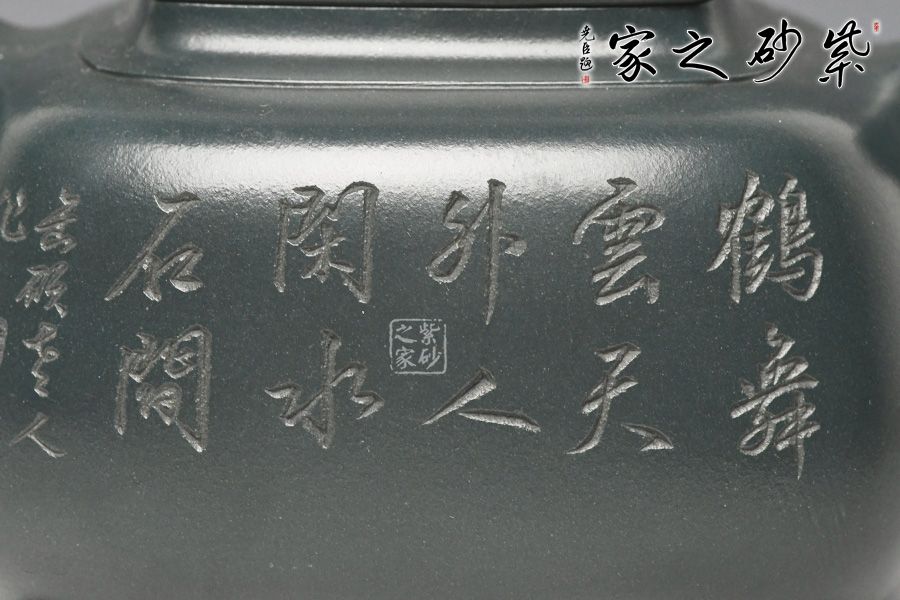 紫砂之家
堯臣題
鶴舞
雲天
外人
閑水
石間
老人
紫砂之家